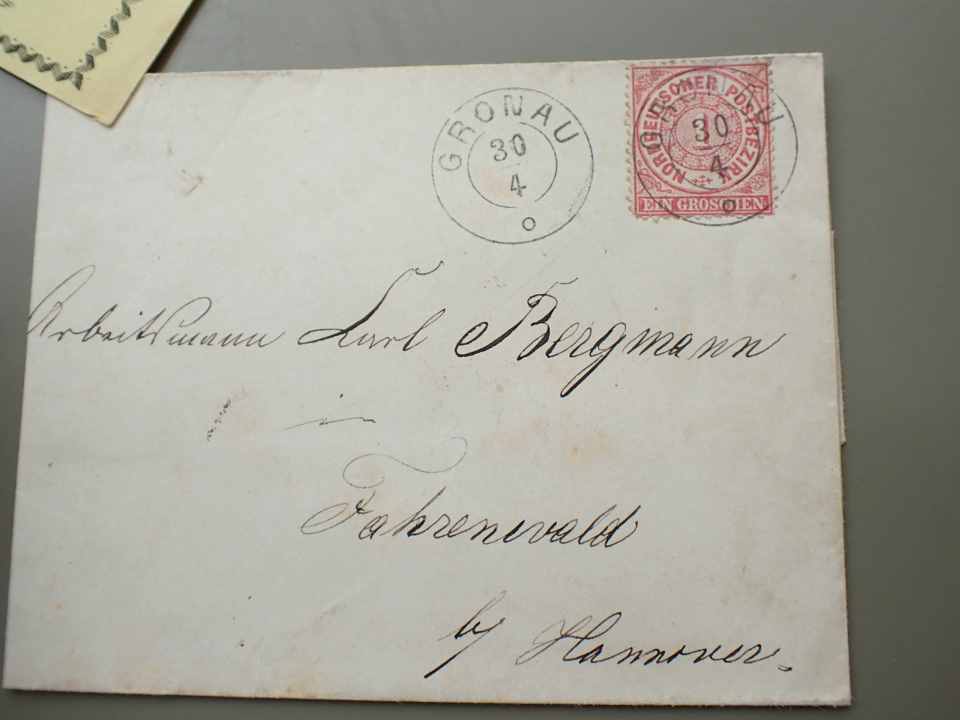 GRONAU
30
4
NORDDEUTSCHER POSTBEZIRK
EIN GROSCHEN
GRONAU
30
4
Arbeitsmann Karl Bergmann
in
Fahrenwald
b/ Hannover.